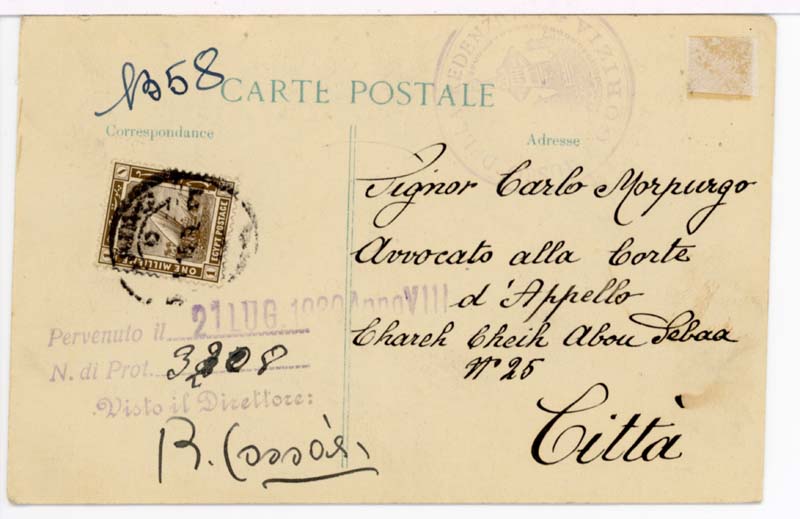 CARTE POSTALE
Correspondance
Adresse
EGYPT POSTAGE
ONE MILLIEME
1
1
Signor Carlo Morpurgo
Avvocato alla Corte
d'Appello
Chareh Cheik Abou Sebaa
N° 25
Città
Pervenuto il 21 LUG. 1930 Anno VIII
N. di Prot.
Visto il Direttore: